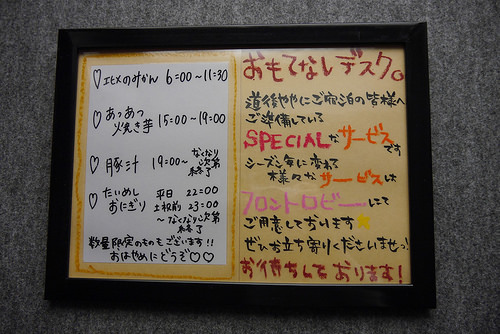 ♡エヒメのみかん 6:00~11:30
♡あつあつ
焼き芋 15:00~19:00
♡豚汁 19:00~なくなり
次第
終了
♡たいめし 平日 22:00
おにぎり 土祝前 23:00
~なくなり次第
終了
数量限定のものもございます!!
おはやめにどうぞ♡♡
おもてなしデスク。
道後ややにご宿泊の皆様へ
ご準備している
SPECIALなサービスです
シーズン毎に変わる
様々なサービスは
フロントロビーにて
ご用意しております
ぜひお立ち寄りくださいませっ!
お待ちしております!